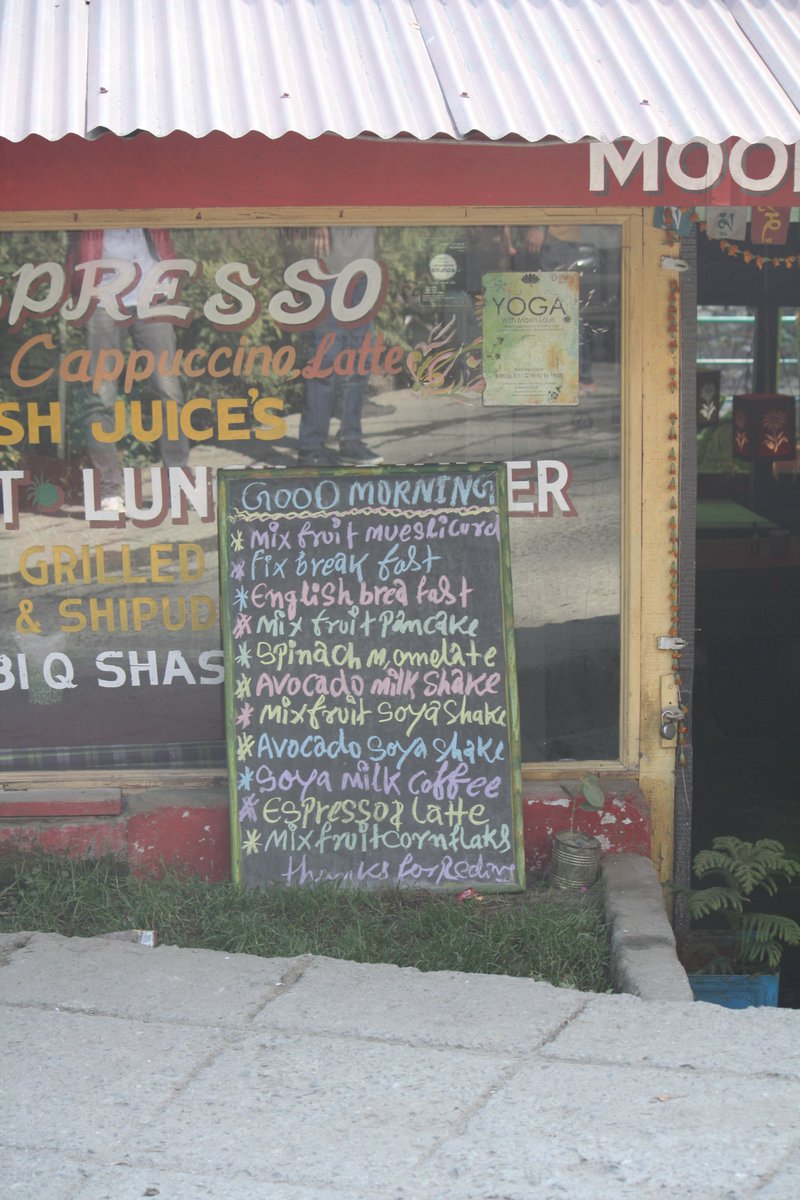 MOO
PRESSO
Cappuccino Latte
SH JUICE'S
T LUN ER
GRILLED
& SHIPUD
BI Q SHAS
YOGA
With Maxin Louis
GOOD MORNING
* Mix fruit mueslicurd
* Fix break fast
* English brea fast
* Mix fruit Pancake
* Spinach M, omelate
* Avocado milk shake
* Mixfruit Soya Shake
* Avocado Soya shake
* Soya milk coffee
* Espresso & Latte
* Mixfruitcornflaks
thanks for Reding